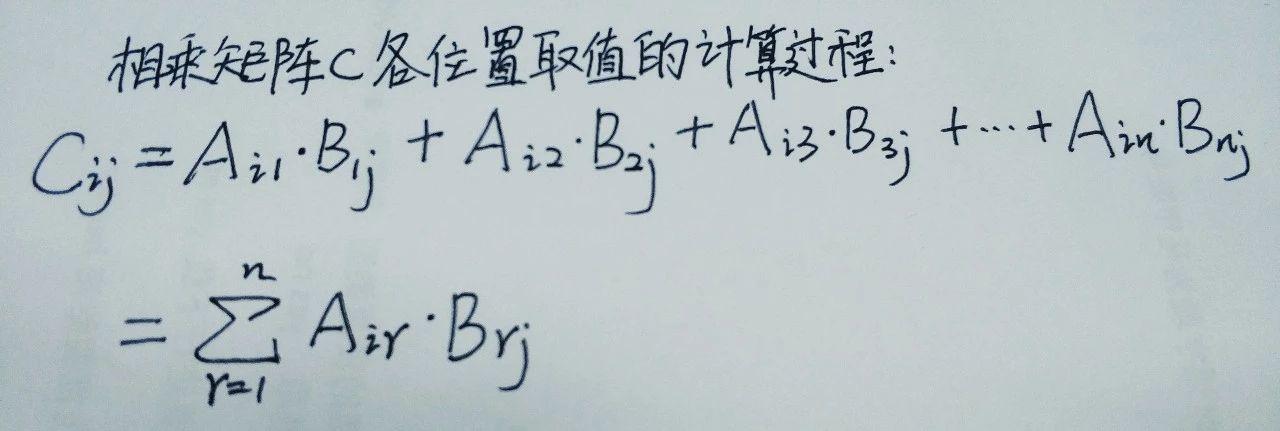 相乘矩阵C各位置取值的计算过程:
C_{ij} = A_{i1}·B_{1j} + A_{i2}·B_{2j} + A_{i3}·B_{3j} + ··· + A_{in}·B_{nj}
= \sum_{r=1}^{n} A_{ir}·B_{rj}